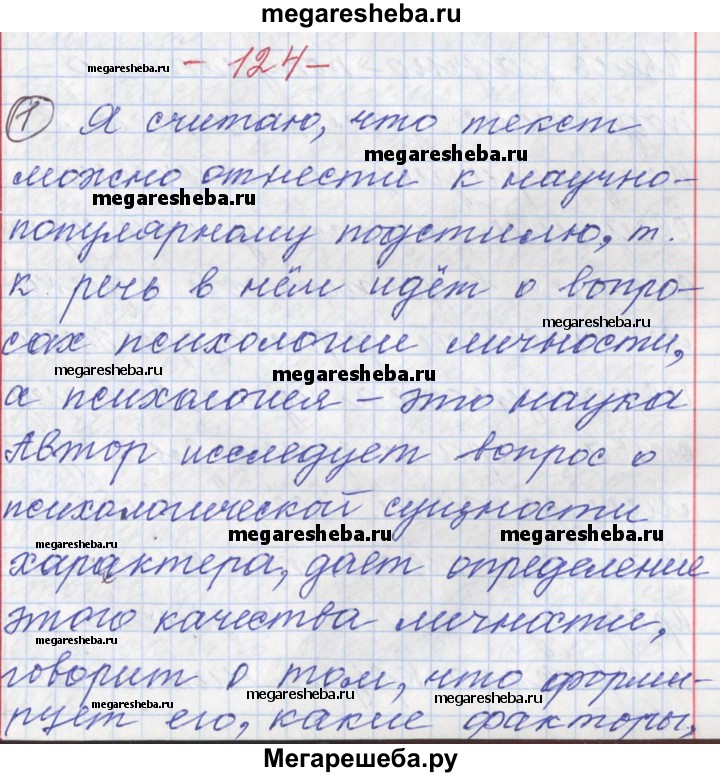 megaresheba.ru
megaresheba.ru - 124 -
1 Я считаю, что текст
megaresheba.ru
можно отнести к научно-
megaresheba.ru
популярному подстилю, т.
к речь в нём идёт о вопро-
megaresheba.ru
сах психологии личности,
megaresheba.ru megaresheba.ru
а психология – это наука
Автор исследует вопрос о
психологической сущности
megaresheba.ru megaresheba.ru megaresheba.ru
характера, дает определение
этого качества личности,
megaresheba.ru megaresheba.ru
говорит о том, что форми-
megaresheba.ru megaresheba.ru megaresheba.ru
рует его, какие факторы,
Мегарешеба.ру